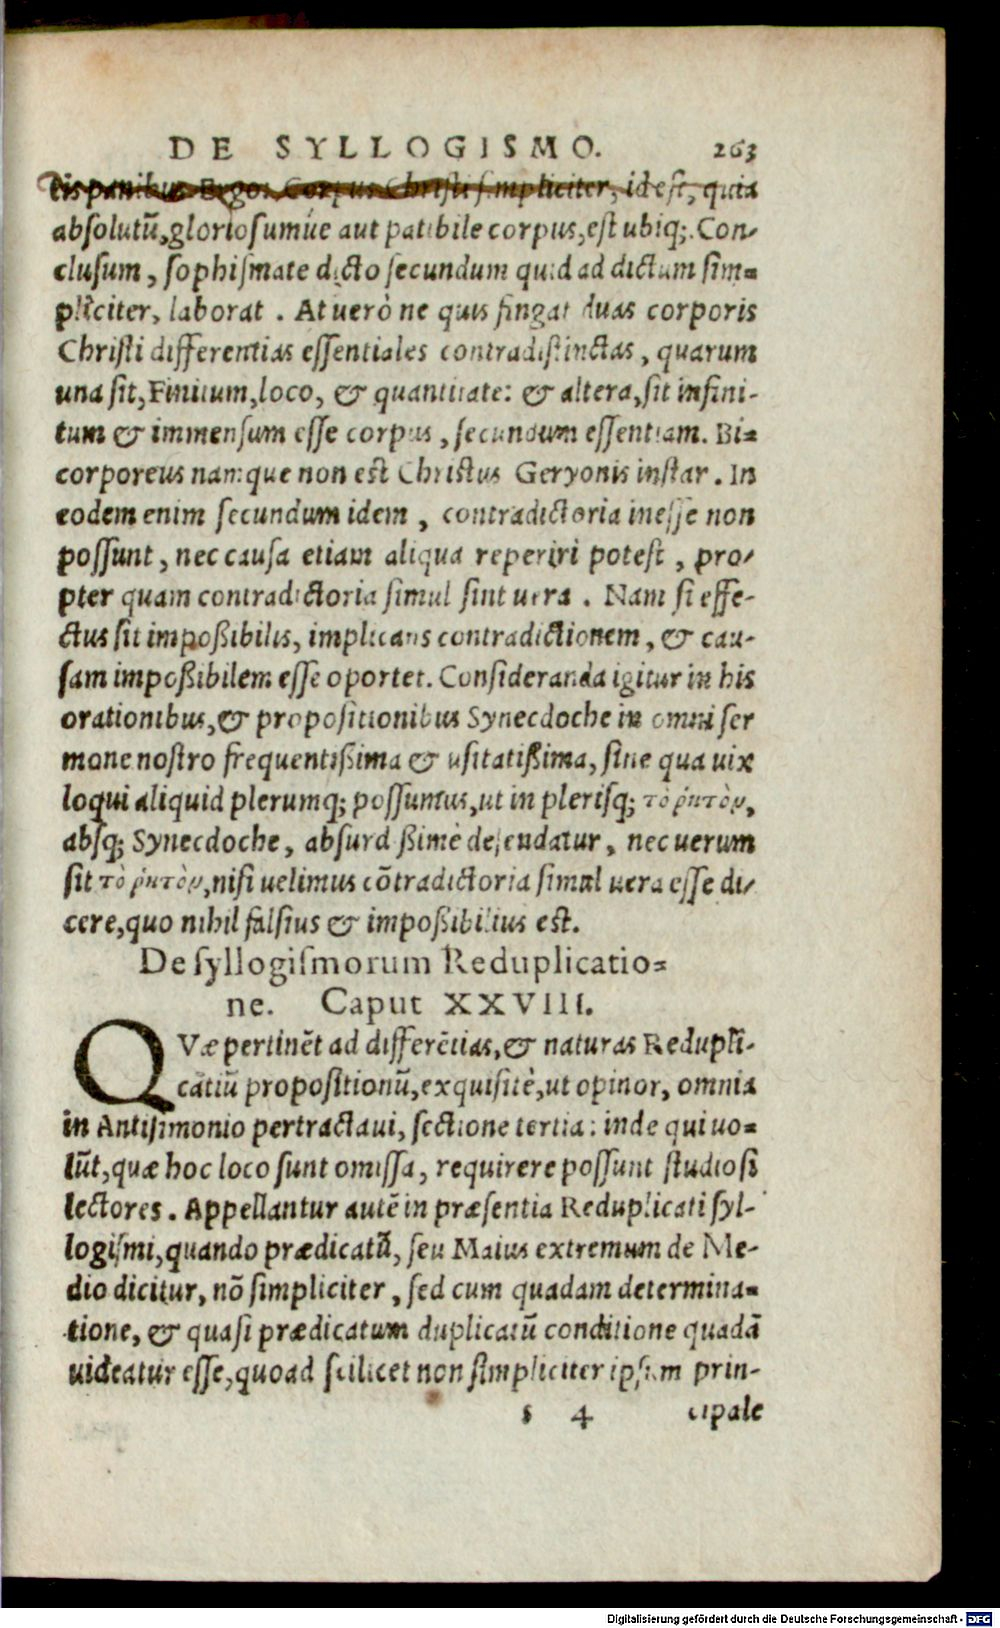 DE SYLLOGISMO. 263
tis panibus Ergo: Corpus Christi simpliciter, id est, quia
absolutū, gloriosumúe aut patibile corpus, est ubiq;. Con-
clusum, sophismate dicto secundum quid ad dictum sim=
pliciter, laborat. At uerò ne quis fingat duas corporis
Christi differentias essentiales contradistinctas, quarum
una sit, Finitum, loco, & quantitate: & altera, sit infini-
tum & immensum esse corpus, secundum essentiam. Bi=
corporeus namque non est Christus Geryonis instar. In
eodem enim secundum idem, contradictoria inesse non
possunt, nec causa etiam aliqua reperiri potest, pro-
pter quam contradictoria simul sint uera. Nam si effe-
ctus sit impoßibilis, implicans contradictionem, & cau-
sam impoßibilem esse oportet. Consideranda igitur in his
orationibus, & propositionibus Synecdoche in omni ser
mone nostro frequentißima & usitatißima, sine qua uix
loqui aliquid plerumq; possumus, ut in plerisq; τὸ ῥητὸν,
absq; Synecdoche, absurdißimè defendatur, nec uerum
sit τὸ ῥητὸν, nisi uelimus cōtradictoria simul uera esse di-
cere, quo nihil falsius & impoßibilius est.
De syllogismorum Reduplicatio=
ne. Caput XXVIII.
QVæ pertinēt ad differētias, & naturas Redupli-
catiū propositionū, exquisitè, ut opinor, omnia
in Antisimonio pertractaui, sectione tertia: inde qui uo=
lūt, quæ hoc loco sunt omissa, requirere possunt studiosi
lectores. Appellantur autē in præsentia Reduplicati syl-
logismi, quando prædicatū, seu Maius extremum de Me-
dio dicitur, nō simpliciter, sed cum quadam determina=
tione, & quasi prædicatum duplicatū conditione quadā
uideatur esse, quoad scilicet non simpliciter ipsum prin-
s 4 cipale
Digitalisierung gefördert durch die Deutsche Forschungsgemeinschaft - DFG